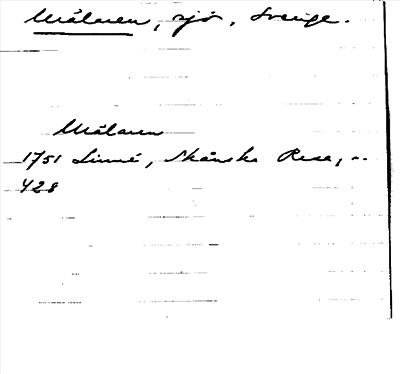 Mälaren, sjö, Sverige.
Mälaren
1751 Linné, Skånska Resa, ..
428